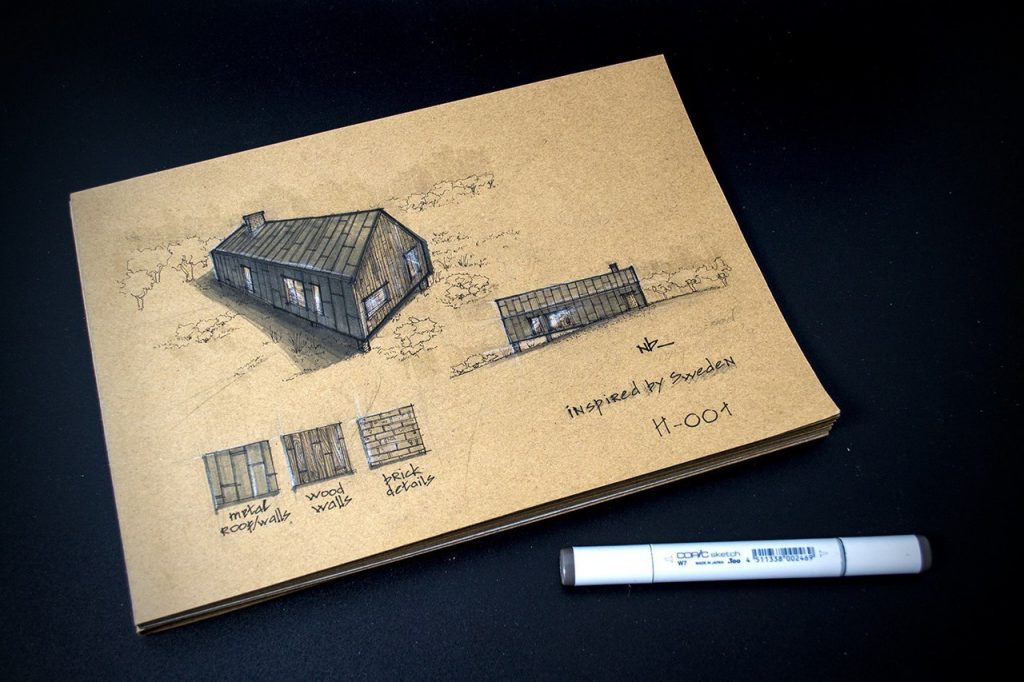 Nb_
inspired by Sweden
H-001
metal
roof/walls
wood
walls
brick
details
COPIC sketch
W7 MADE IN JAPAN .Too
4 511338 002469